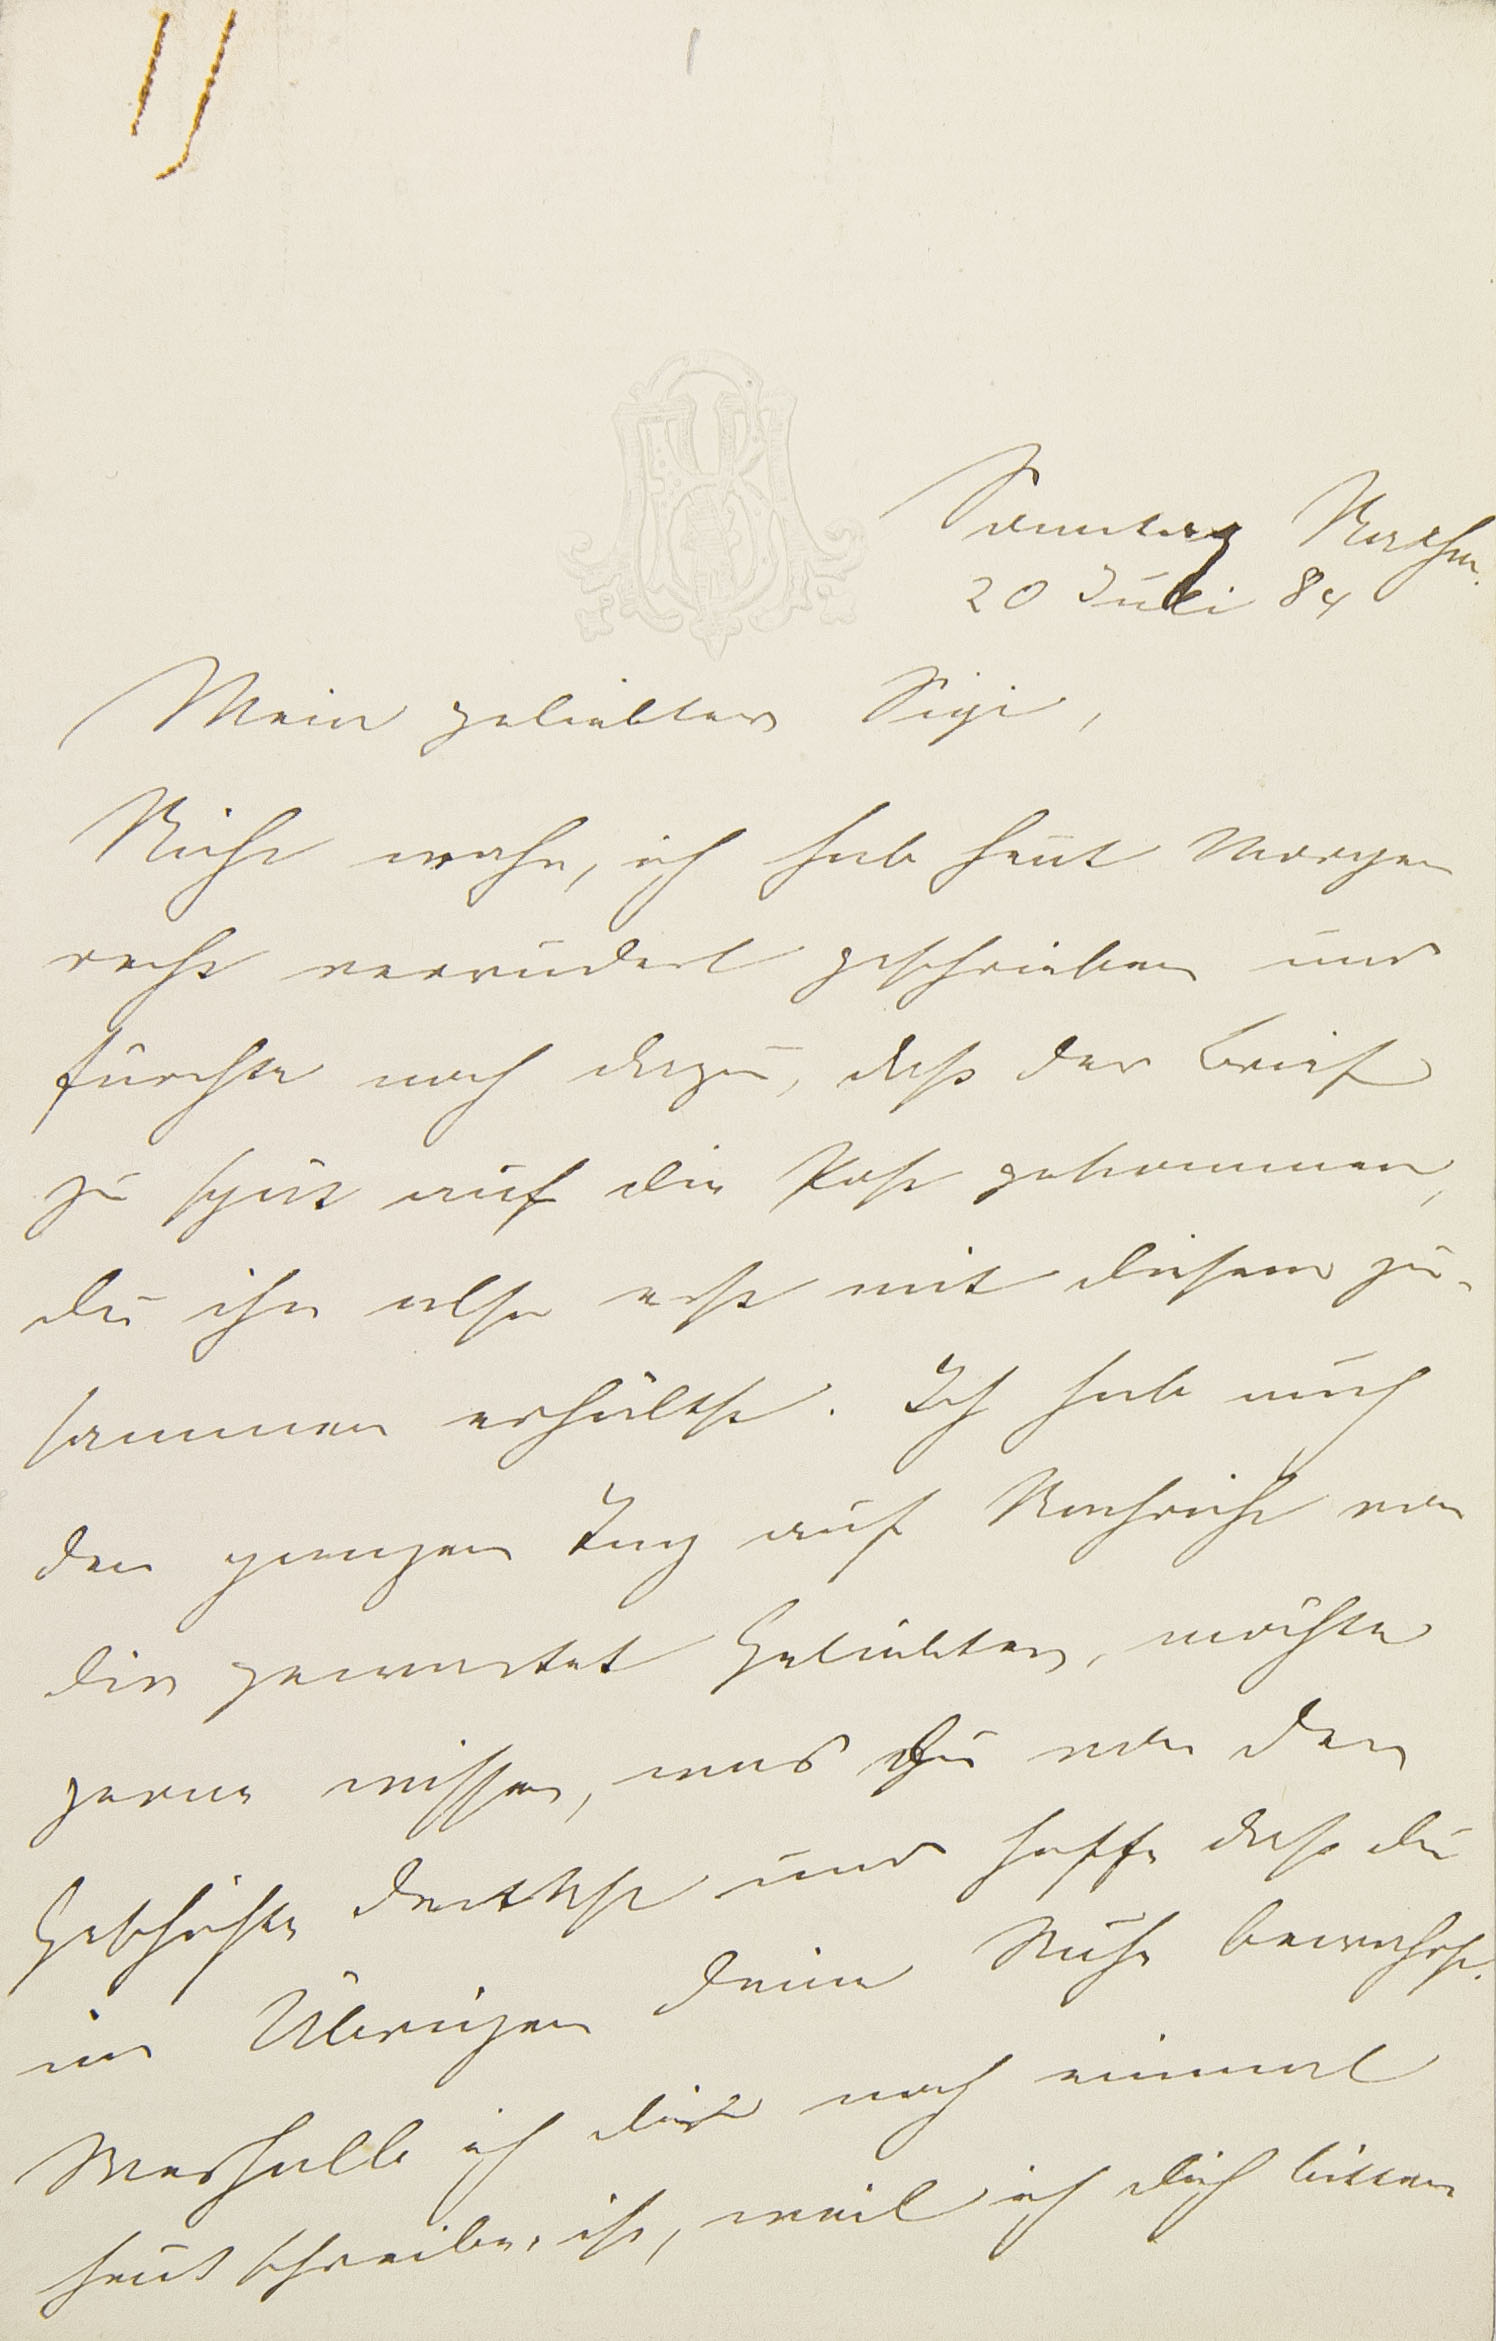 Sonntag Nachm.
20 Juli 84
Mein geliebter Sigi,
Nicht wahr, ich hab heut Morgen
recht verrudert geschrieben und
fürchte noch dazu, daß der Brief
zu spät auf die Post gekommen,
du ihn also erst mit diesem zu-
sammen erhältst. Ich hab mich
den ganzen Tag auf Nachricht von
dir gewartet Geliebter, möchte
gerne wissen, was du von den
Geschäft denkst und hoffe daß du
im Übrigen deine Ruhe bewahrst.
Weshalb ich dir noch einmal
heut schreibe, ist, weil ich dich bitten